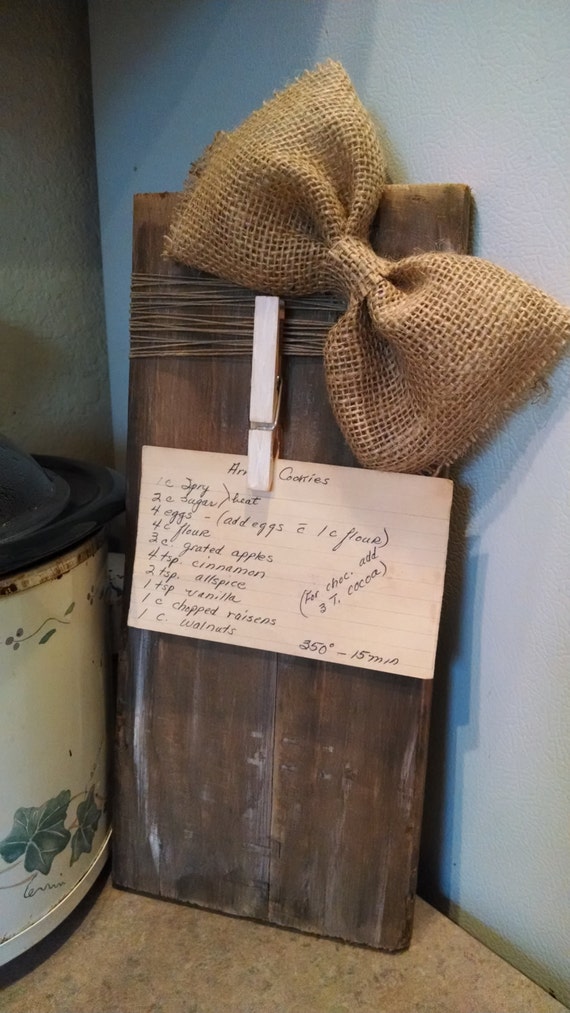 Cookies
1 c Spry
2 c Sugar } beat
4 eggs - (add eggs c̄ 1 c flour)
4 c flour
3 c grated apples
4 tsp. cinnamon
2 tsp. allspice
1 tsp vanilla
1 c chopped raisens
1 c. walnuts
(For choc. add
3 T. cocoa)
350° - 15 min